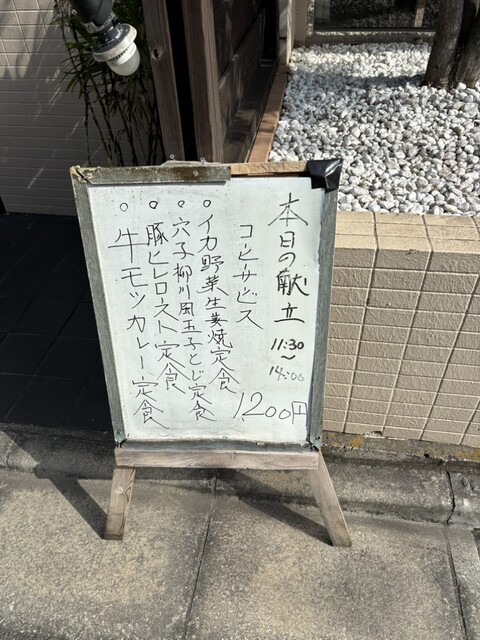 本日の献立
11:30
〜
14:00
コーヒーサービス
1200円
。イカ野菜生姜焼定食
。穴子柳川風玉子とじ定食
。豚ヒレロースト定食
。牛モツカレー定食